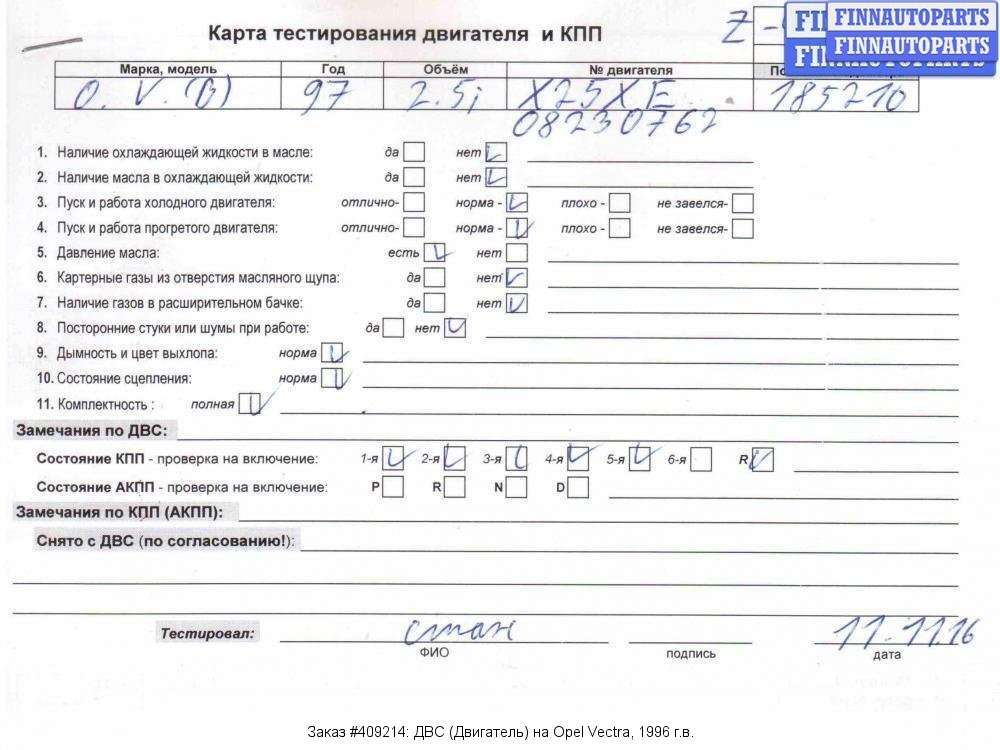 Карта тестирования двигателя и КПП
Z-
FINNAUTOPARTS
FINNAUTOPARTS
Марка, модель Год Объём № двигателя
O. V. (B) 97 2.5i X25XE 185210
08230762
1. Наличие охлаждающей жидкости в масле: да нет
2. Наличие масла в охлаждающей жидкости: да нет
3. Пуск и работа холодного двигателя: отлично- норма - плохо - не завелся-
4. Пуск и работа прогретого двигателя: отлично- норма - плохо - не завелся-
5. Давление масла: есть нет
6. Картерные газы из отверстия масляного щупа: да нет
7. Наличие газов в расширительном бачке: да нет
8. Посторонние стуки или шумы при работе: да нет
9. Дымность и цвет выхлопа: норма
10. Состояние сцепления: норма
11. Комплектность : полная
Замечания по ДВС:
Состояние КПП - проверка на включение: 1-я 2-я 3-я 4-я 5-я 6-я R
Состояние АКПП - проверка на включение: P R N D
Замечания по КПП (АКПП):
Снято с ДВС (по согласованию!):
Тестировал: стан 11.11.16
ФИО подпись дата
Заказ #409214: ДВС (Двигатель) на Opel Vectra, 1996 г.в.